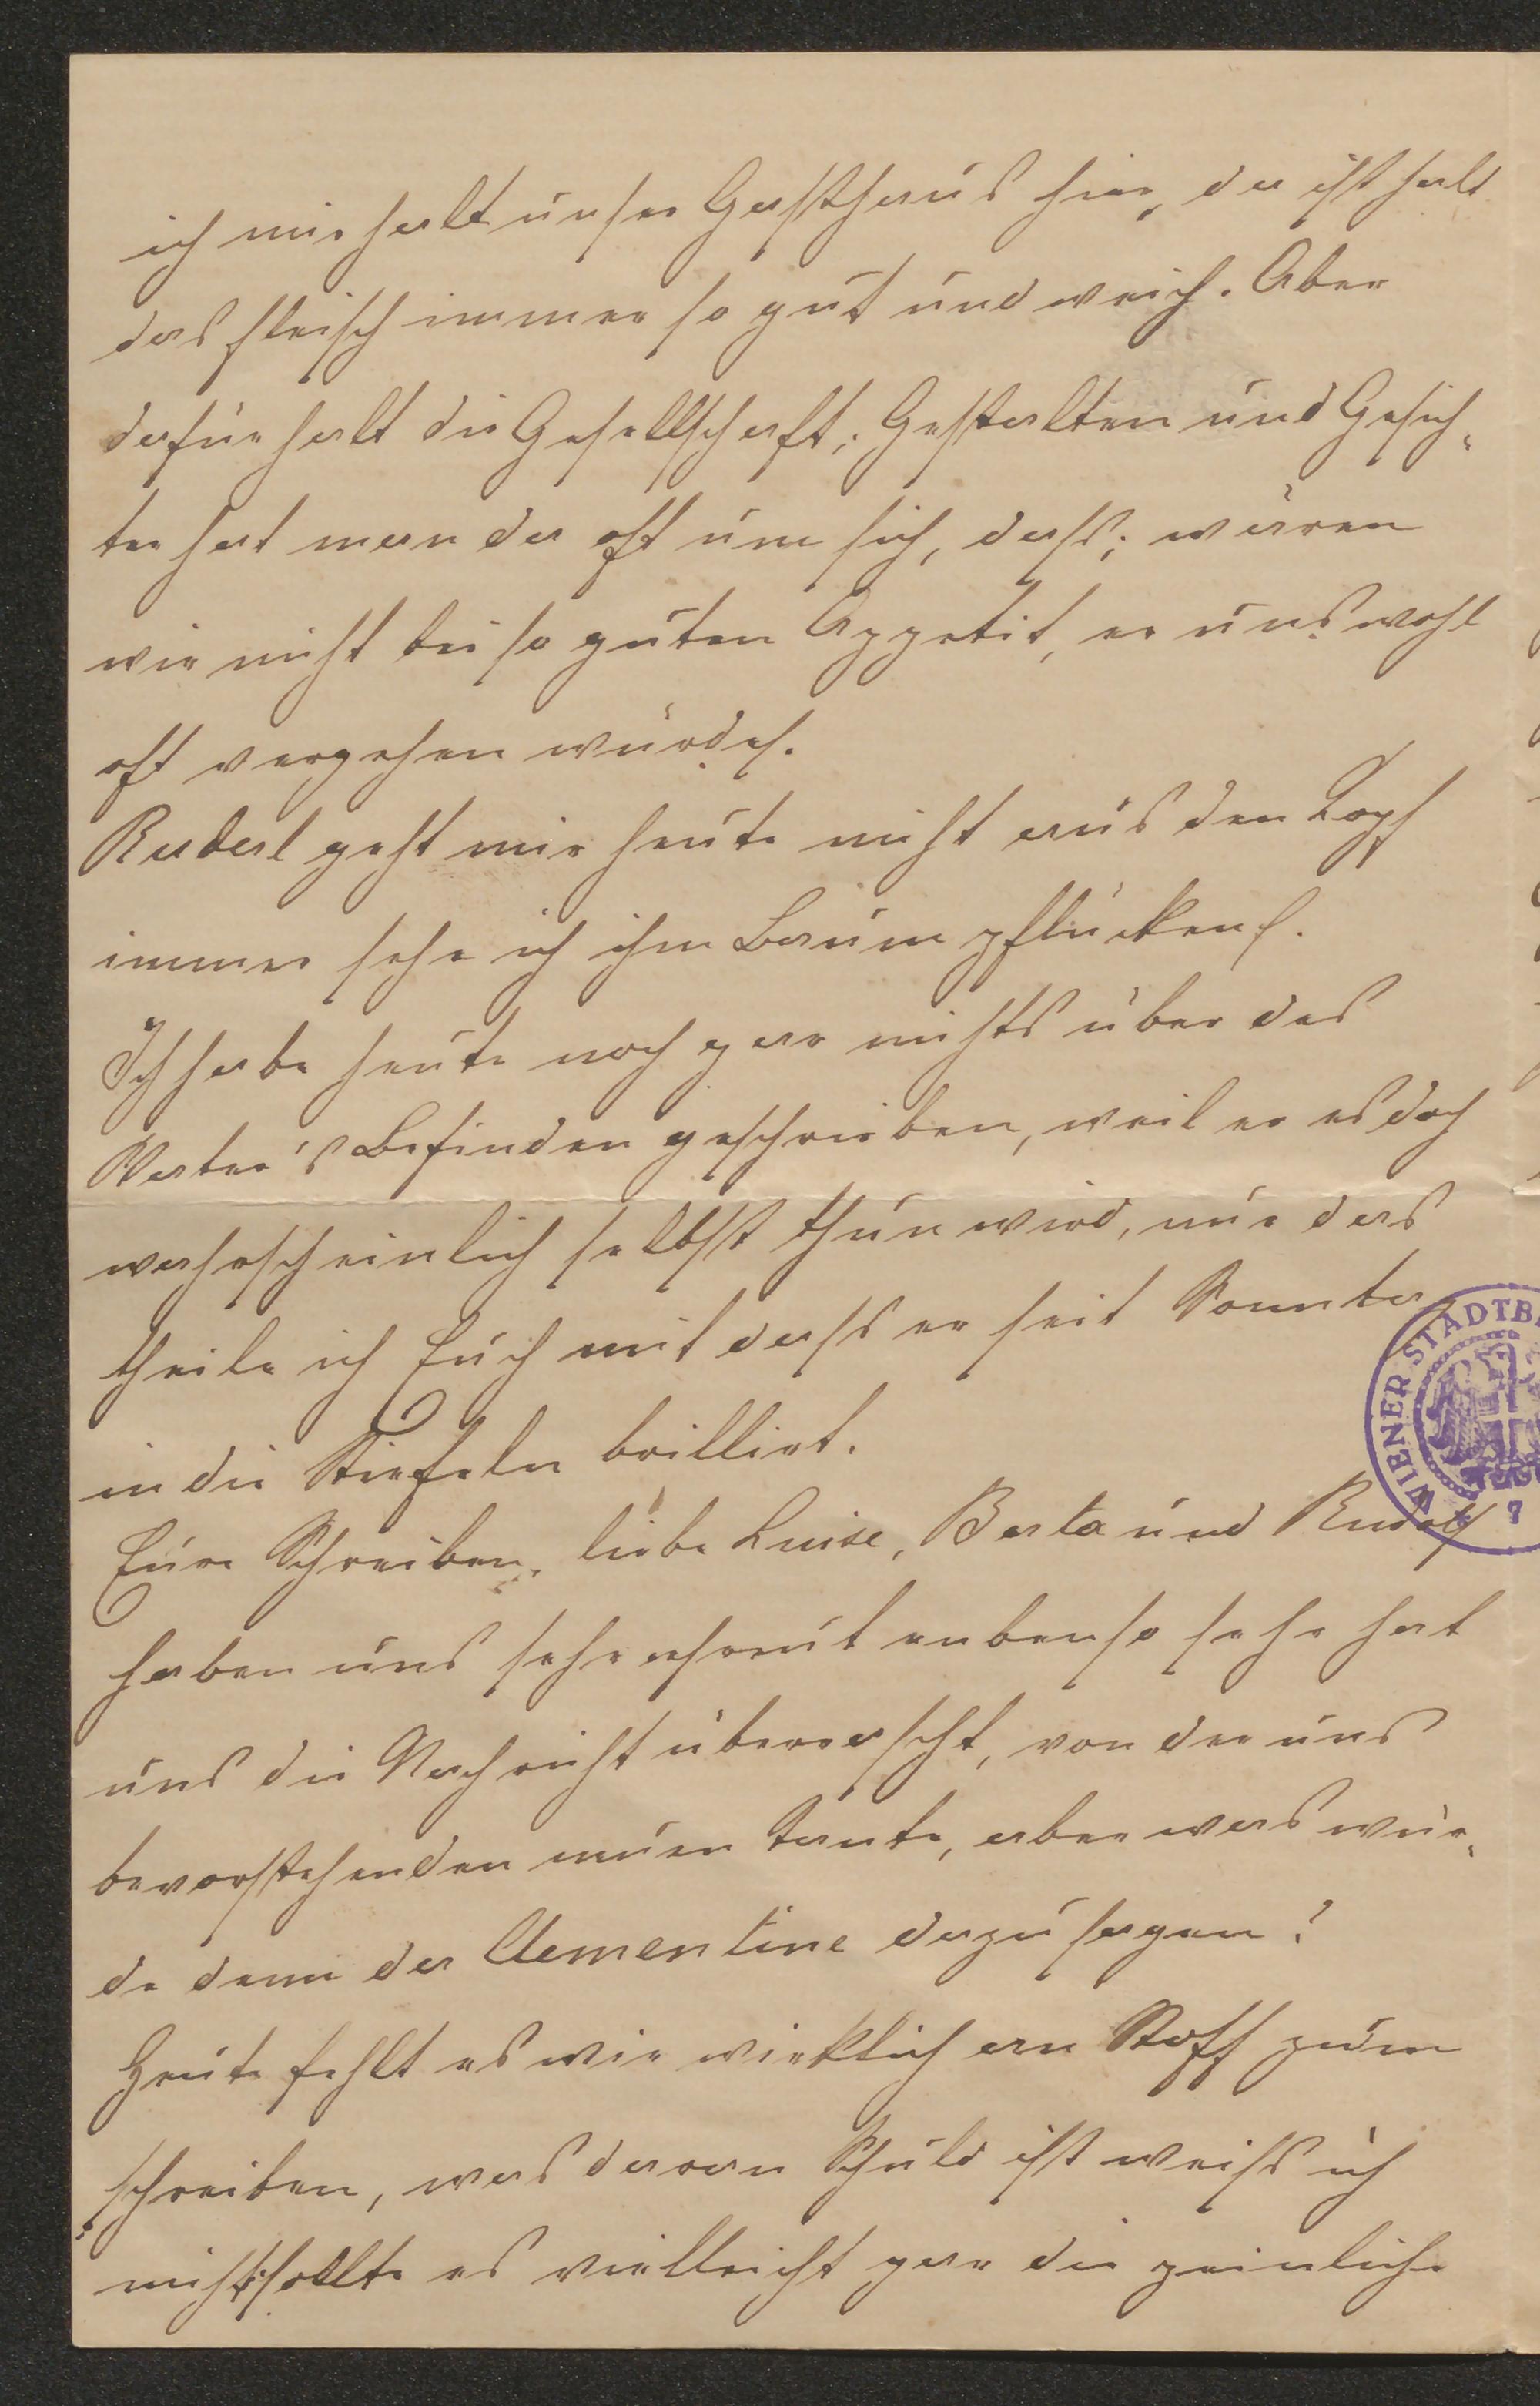 ich mir halt unser Gasthaus hier, da ist halt
das Fleisch immer so gut und weich. Aber
dafür halt die Gesellschaft; Gestalten und Gesich-
ter hat man da oft um sich, dass; wären
wir nicht bei so guten Appetit, er uns wohl
oft vergehen würde.
Ruderl geht mir heute nicht aus den Kopf
immer sehe ich ihm Baum pflücken.
Ich habe heute noch gar nichts über das
Vater's Befinden geschrieben, weil er es doch
wahrscheinlich selbst thun wird, nur das
theile ich Euch mit dass er seit Sonntag
in die Stiefeln brillirt.
Eure Schreiben, liebe Luise, Berta und Rudolf
haben uns sehr erfreut enbenso sehr hat
uns die Nachricht überrascht, von der uns
bevorstehenden neuen Tante, aber was wür-
de denn da Clementine dazu sagen?
Heute fehlt es mir wirklich an Stoff zum
schreiben, was daran Schuld ist weiss ich
nicht; sollte es vielleicht gar die peinliche
WIENER STADTB